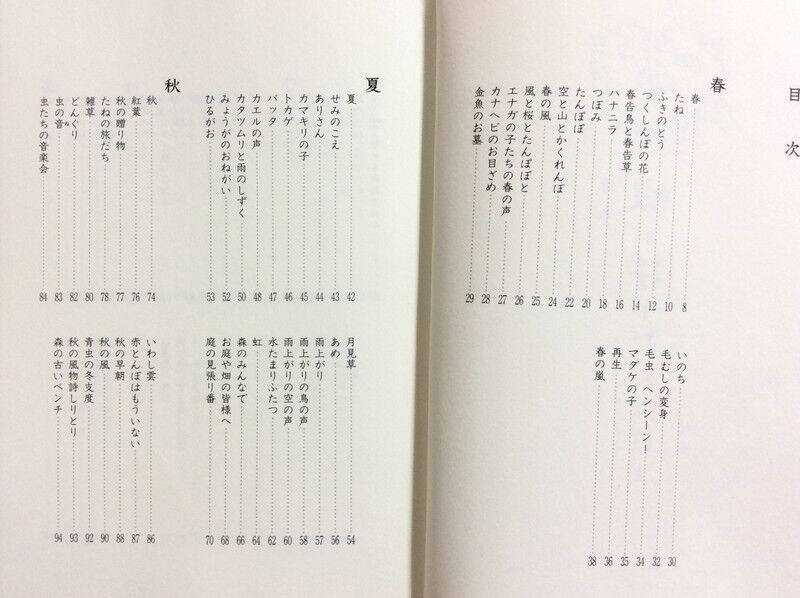 目次
春
春 8
たね 10
ふきのとう 12
つくしんぼの花 14
春告鳥と春告草 16
ハナニラ 18
つぼみ 20
たんぽぽ 22
空と山とかくれんぼ 24
春の風 25
風と桜とたんぽぽと 26
エナガの子たちの春の声 27
カナヘビのお目ざめ 28
金魚のお墓 29
いのち 30
毛むしの変身 32
毛虫 ヘンシーン! 34
マダケの子 35
再生 36
春の嵐 38
夏
夏 42
せみのこえ 43
ありさん 44
カマキリの子 45
トカゲ 46
バッタ 47
カエルの声 48
カタツムリと雨のしずく 50
みょうがのおねがい 52
ひるがお 53
月見草 54
あめ 56
雨上がり 57
雨上がりの鳥の声 58
雨上がりの空の声 60
水たまりふたつ 62
虹 64
森のみんなで 66
お庭や畑の皆様へ 68
庭の見張り番 70
秋
秋 74
紅葉 76
秋の贈り物 77
たねの旅だち 78
雑草 80
どんぐり 82
虫の音 83
ね
虫たちの音楽会 84
いわし雲 86
赤とんぼはもういない 87
秋の早朝 88
秋の風 90
青虫の冬支度 92
秋の風物詩しりとり 93
森の古いベンチ 94